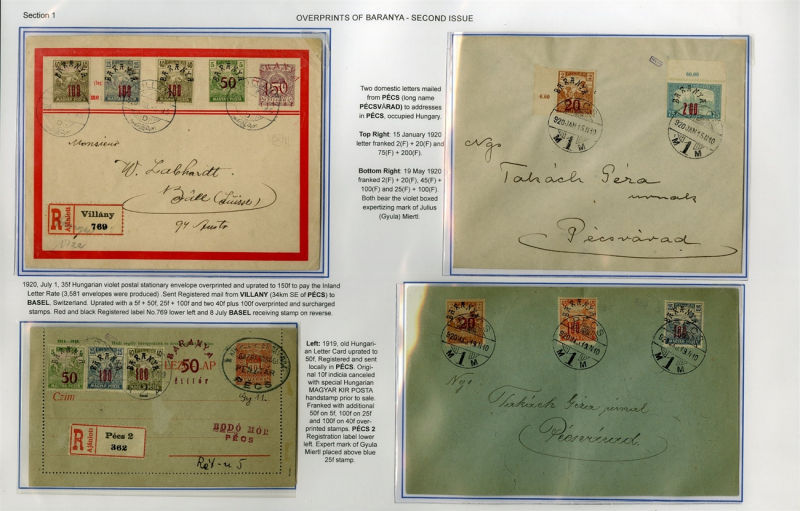 Section 1
OVERPRINTS OF BARANYA - SECOND ISSUE
BARANYA
100
BARANYA
100
BARANYA
100
BARANYA
50
BARANYA
150
Monsieur
W. Labhardt
Bâle (Suisse)
R
Ajánlott
Villány
769
Two domestic letters mailed
from PÉCS (long name
PÉCSVÁRAD) to addresses
in PÉCS, occupied Hungary.
Top Right: 15 January 1920
letter franked 2(F) + 20(F) and
75(F) + 200(F).
Bottom Right: 19 May 1920
franked 2(F) + 20(F), 45(F) +
100(F) and 25(F) + 100(F).
Both bear the violet boxed
expertizing mark of Julius
(Gyula) Miertl.
BARANYA
20
BARANYA
200
920 JAN 15
M 1 M
920 JAN 15
M 1 M
Takách Géza
urnak
Pécsvárad
1920, July 1, 35f Hungarian violet postal stationary envelope overprinted and uprated to 150f to pay the Inland
Letter Rate (3,581 envelopes were produced) .Sent Registered mail from VILLANY (34km SE of PÉCS) to
BASEL, Switzerland. Uprated with a 5f + 50f, 25f + 100f and two 40f plus 100f overprinted and surcharged
stamps. Red and black Registered label No.769 lower left and 8 July BASEL receiving stamp on reverse.
BARANYA
50
100
100
BARANYA
50
fillér
PÉCS
Czím
R
Ajánlott
Pécs 2
362
BODÓ MÓR
PÉCS
Left: 1919, old Hungari-
an Letter Card uprated to
50f, Registered and sent
locally in PÉCS. Origi-
nal 10f indicia canceled
with special Hungarian
MAGYAR KIR POSTA
handstamp prior to sale.
Franked with additional
50f on 5f, 100f on 25f
and 100f on 40f over-
printed stamps. PÉCS 2
Registration label lower
left. Expert mark of Gyula
Miertl placed above blue
25f stamp.
20
100
100
M 1 M
M 1 M
M 1 M
Takách Géza
Pécsvárad